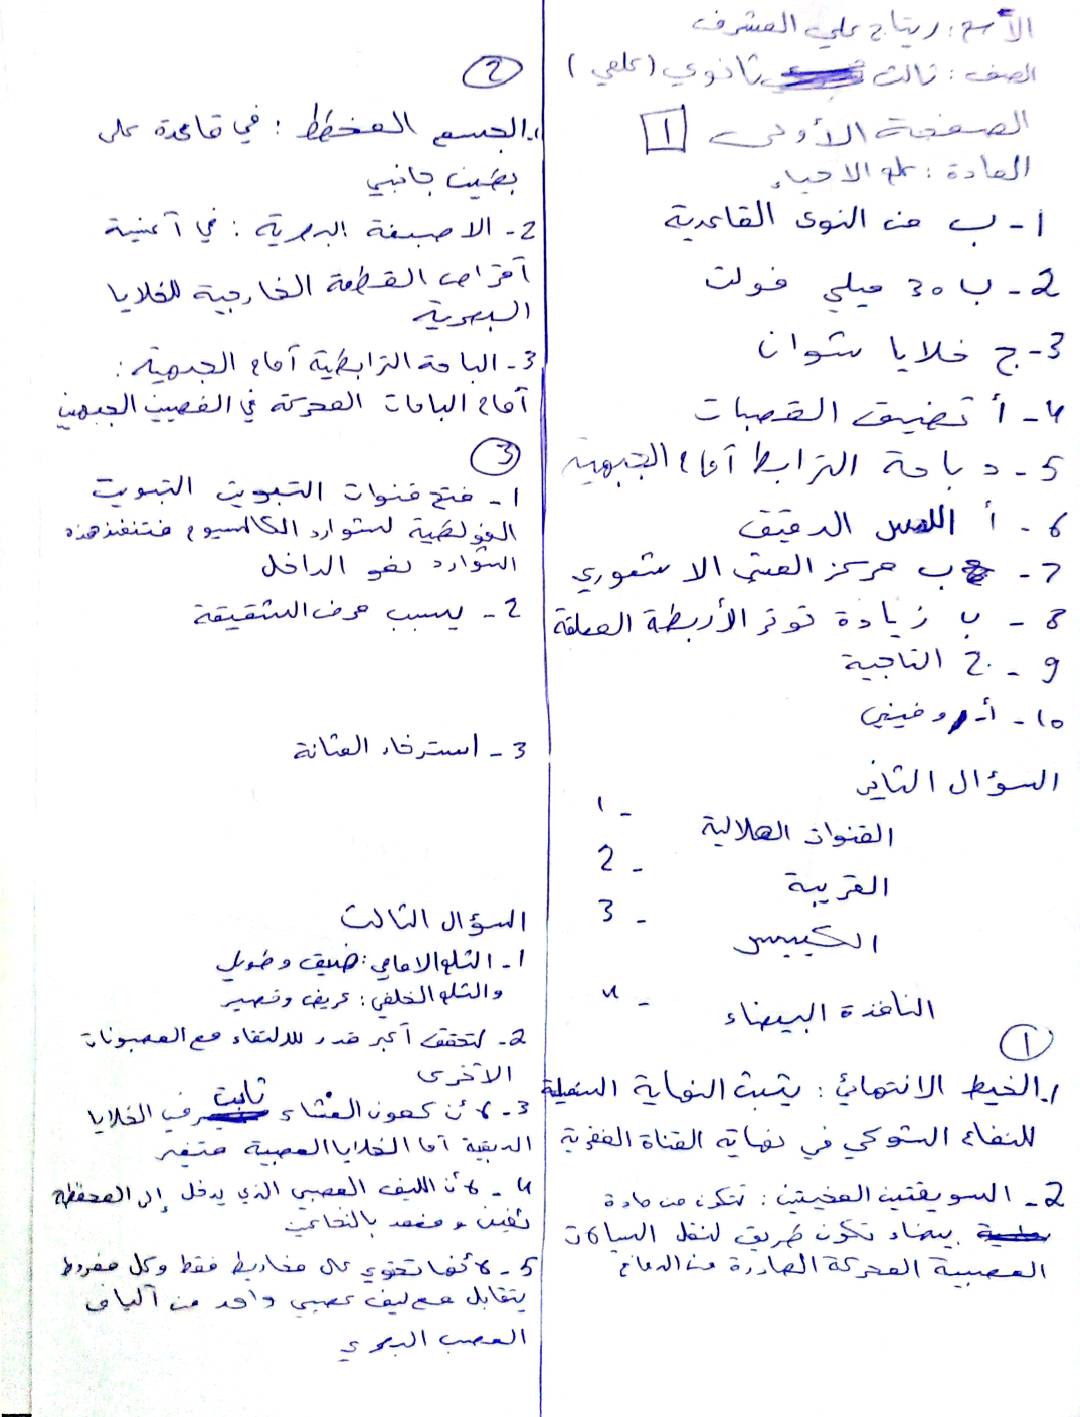 الأسم: ريتاج علي المشرف
الصف: ثالث ثانوي (علمي)
الصفحة الأولى 1
المادة: علم الاحياء
1- ب من النوى القاعدية
2- ب 30 ميلي فولت
3- ج خلايا شوان
4- أ تضييق القصبات
5- د باحة الترابط أمام الجبهية
6- أ اللمس الدقيق
7- ب مركز العتبي الاشعوري
8- ب زيادة توتر الأربطة المعلقة
9- ج التاجية
10- أ روفيني
السؤال الثاني
1-
القنوات الهلالية
2-
القريبة
3-
الكييس
4-
النافذة البيضاء
1
1. الخيط الانتهائي: يثبت النهاية السفلية
للنخاع الشوكي في نهاية القناة الفقرية
2- السويقتين المخيتين: تتكون من مادة
بيضاء تكون طريق لنقل السيالات
العصبية المحركة الصادرة من الدماغ
2
1. الجسم المخطط: في قاعدة على
بطين جانبي
2- الاصبغة البصرية: في آغشية
آقراص القطعة الخارجية للخلايا
البصرية
3- الباحة الترابطية آمام الجبهية:
آمام الباحات المحركة في الفصين الجبهين
3
1- فتح قنوات التبويب التبويب
الفولطية لشوارد الكالسيوم فتنفذ هذه
الشوارد نحو الداخل
2- يسبب مرض الشقيقة
3- استرخاء المثانة
السؤال الثالث
1- الثلم الامامي: ضيق وطويل
والثلم الخلفي: عريض وقصير
2- لتحقق آكبر قدر للالتقاء مع العصبونات
الآخرى
3- لآن كمون الغشاء ثابت في الخلايا
الدبقية آما الخلايا العصبية متغير
4- لآن الليف العصبي الذي يدخل إلى المحفظة
ثخين و مغمد بالنخاعين
5- لآنها تحتوي على مخاريط فقط وكل مخروط
يتقابل مع ليف عصبي واحد من آلياف
العصب البصري